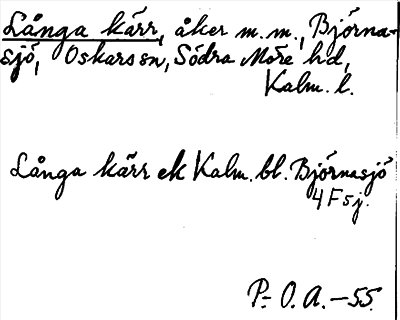 Långa kärr, åker m.m., Björna-
sjö, Oskars sn, Södra Möre hd,
Kalm. l.
Långa kärr ek Kalm. bl. Björnasjö
4 F sj.
P-O.A.-55.